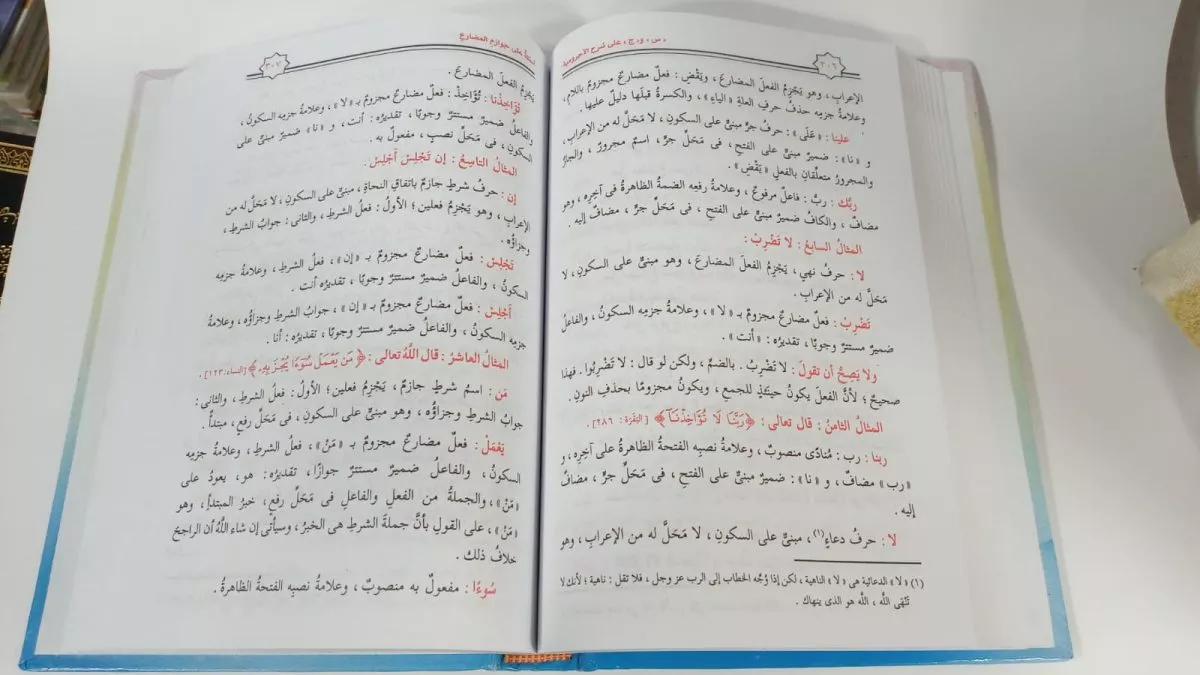 « س ، و ، ج » على شرح الآجرومية
٣٠٦
الإعراب ، وهو يَجْزِمُ الفعلَ المضارعَ ، ويَقْضِ : فعلٌ مضارعٌ مجزومٌ باللامِ ،
وعلامةُ جزمِه حذفُ حرفِ العلةِ « الياءِ » ، والكسرةُ قبلَها دليلٌ عليها .
علينا : « عَلَى » : حرفُ جرٍّ مبنىٌّ على السكونِ ، لا مَحَلَّ له من الإعرابِ ،
و « نا » : ضميرٌ مبنىٌّ على الفتحِ ، فى مَحَلِّ جرٍّ ، اسمٌ مجرورٌ ، والجارُّ
والمجرورُ متعلِّقانِ بالفعلِ « يَقْضِ » .
ربُّك : ربُّ : فاعلٌ مرفوعٌ ، وعلامةُ رفعِه الضمةُ الظاهرةُ فى آخِرِه ، وهو
مضافٌ ، والكافُ ضميرٌ مبنىٌّ على الفتحِ ، فى مَحَلِّ جرٍّ ، مضافٌ إليه .
المثالُ السابعُ : لا تَضْرِبْ :
لا : حرفُ نهيٍ ، يَجْزِمُ الفعلَ المضارعَ ، وهو مبنىٌّ على السكونِ ، لا
مَحَلَّ له من الإعرابِ .
تَضْرِبْ : فعلٌ مضارعٌ مجزومٌ بـ « لا » ، وعلامةُ جزمِه السكونُ ، والفاعلُ
ضميرٌ مستترٌ وجوبًا ، تقديرُه : « أنت » .
ولا يَصِحُّ أن تقولَ : لا تَضْرِبُ . بالضمِّ ، ولكن لو قال : لا تَضْرِبُوا . فهذا
صحيحٌ ؛ لأنَّ الفعلَ يكونُ حينَئذٍ للجمعِ ، ويكونُ مجزومًا بحذفِ النونِ .
المثالُ الثامنُ : قال تعالى : ﴿ رَبَّنَا لَا تُؤَاخِذْنَآ ﴾ [ البَقَرَة : ٢٨٦ ] .
ربنا : رب : مُنادًى منصوبٌ ، وعلامةُ نصبِه الفتحةُ الظاهرةُ على آخِرِه ، و
« رب » مضافٌ ، و « نا » : ضميرٌ مبنىٌّ على الفتحِ ، فى مَحَلِّ جرٍّ ، مضافٌ
إليه .
لا : حرفُ دعاءٍ(١) ، مبنىٌّ على السكونِ ، لا مَحَلَّ له من الإعرابِ ، وهو
(١) « لا » الدعائية هى « لا » الناهية ، لكن إذا وُجه الخطاب إلى الرب عز وجل ، فلا تقل : ناهية ؛ لأنك لا
تَنْهَى الله ، الله هو الذى ينهاك .
أمثلة على جوازم المضارع
٣٠٧
يَجْزِمُ الفعلَ المضارعَ .
تُؤَاخِذْنا : تُؤَاخِذْ : فعلٌ مضارعٌ مجزومٌ بـ « لا » ، وعلامةُ جزمِه السكونُ ،
والفاعلُ ضميرٌ مستترٌ وجوبًا ، تقديرُه : أنت ، و « نا » ضميرٌ مبنىٌّ على
السكونِ ، فى مَحَلِّ نصبٍ ، مفعولٌ به .
المثالُ التاسعُ : إن تَجْلِسْ أَجْلِسْ .
إن : حرفُ شرطٍ جازمٌ باتفاقِ النحاةِ ، مبنىٌّ على السكونِ ، لا مَحَلَّ له من
الإعرابِ ، وهو يَجْزِمُ فعلين ؛ الأولُ : فعلُ الشرطِ ، والثانى : جوابُ الشرطِ ،
وجزاؤُه .
تَجْلِسْ : فعلٌ مضارعٌ مجزومٌ بـ « إن » ، فعلُ الشرطِ ، وعلامةُ جزمِه
السكونُ ، والفاعلُ ضميرٌ مستترٌ وجوبًا ، تقديرُه أنت .
أَجْلِسْ : فعلٌ مضارعٌ مجزومٌ بـ « إن » ، جوابُ الشرطِ وجزاؤُه ، وعلامةُ
جزمِه السكونُ ، والفاعلُ ضميرٌ مستترٌ وجوبًا ، تقديرُه : أنا .
المثالُ العاشرُ : قال اللَّهُ تعالى : ﴿ مَن يَعْمَلْ سُوٓءًا يُجْزَ بِهِۦ ﴾ [النساء:١٢٣] .
مَن : اسمُ شرطٍ جازمٌ ، يَجْزِمُ فعلين ؛ الأولُ : فعلُ الشرطِ ، والثانى :
جوابُ الشرطِ وجزاؤُه ، وهو مبنىٌّ على السكونِ ، فى مَحَلِّ رفعٍ ، مبتدأٌ .
يَعْمَلْ : فعلٌ مضارعٌ مجزومٌ بـ « مَنْ » ، فعلُ الشرطِ ، وعلامةُ جزمِه
السكونُ ، والفاعلُ ضميرٌ مستترٌ جوازًا ، تقديرُه : هو ، يعودُ على
« مَنْ » ، والجملةُ من الفعلِ والفاعلِ فى مَحَلِّ رفعٍ ، خبرُ المبتدأِ ، وهو
« مَنْ » ، على القولِ بأنَّ جملةَ الشرطِ هى الخبرُ ، وسيأتى إن شاء اللَّهُ أن الراجحَ
خلافُ ذلك .
سُوءًا : مفعولٌ به منصوبٌ ، وعلامةُ نصبِه الفتحةُ الظاهرةُ .